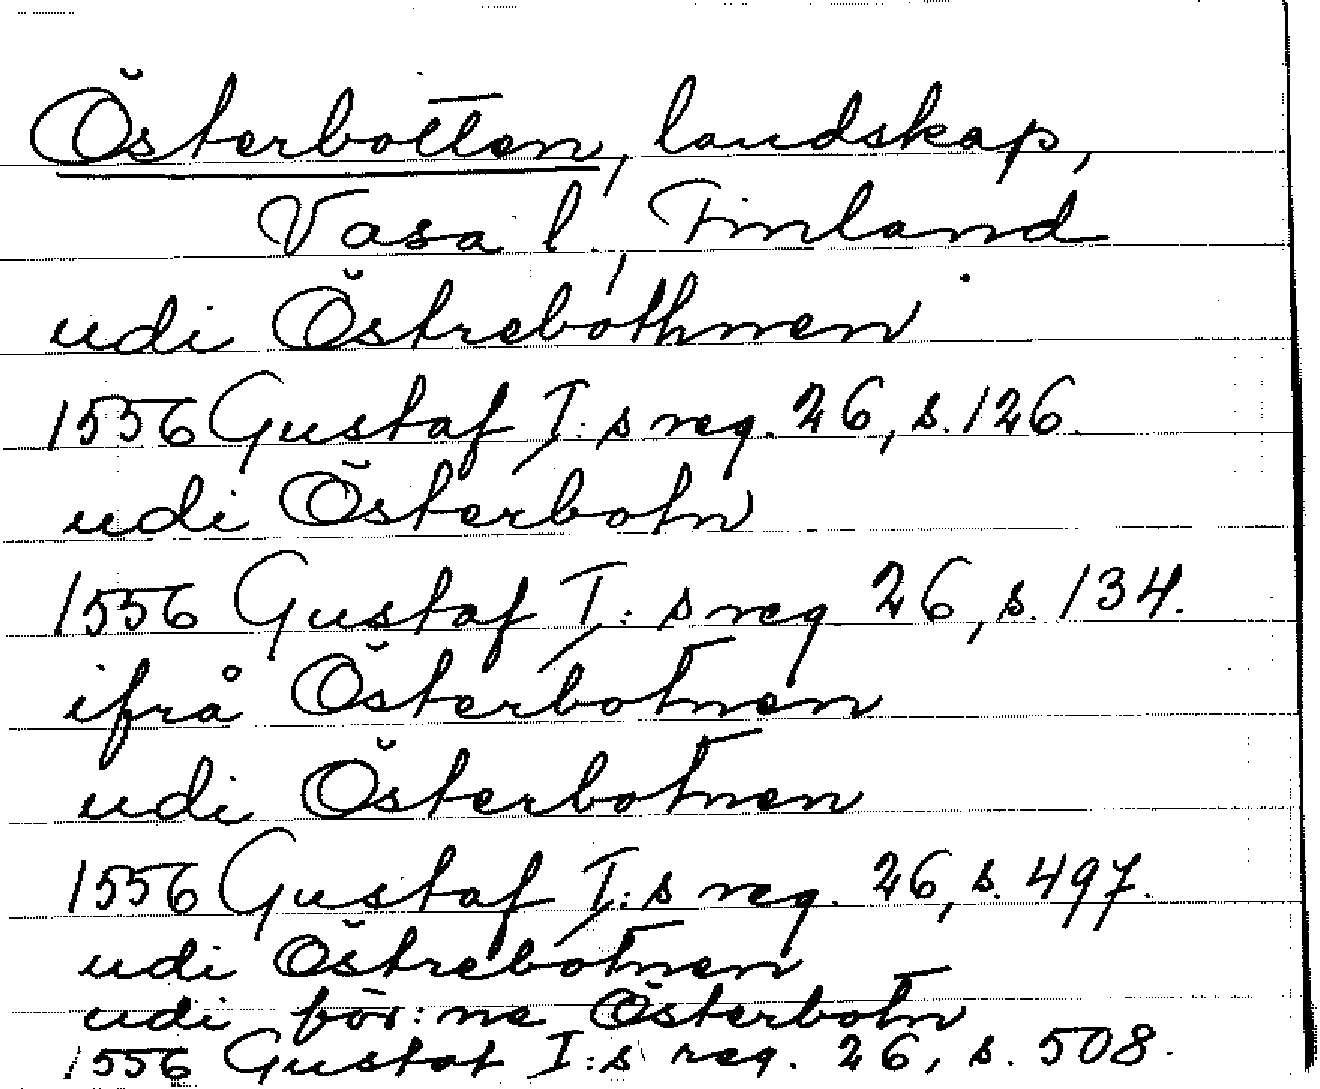 Österbotten, landskap,
Vasa l, Finland
udi Östrebothnen
1556 Gustaf I:s reg. 26, s. 126.
udi Österbotn
1556 Gustaf I:s reg 26, s. 134.
ifrå Österbotnen
udi Österbotnen
1556 Gustaf I:s reg. 26, s. 497.
udi Östrebotnen
udi för:ne Österbotn
1556 Gustaf I:s reg. 26, s. 508.